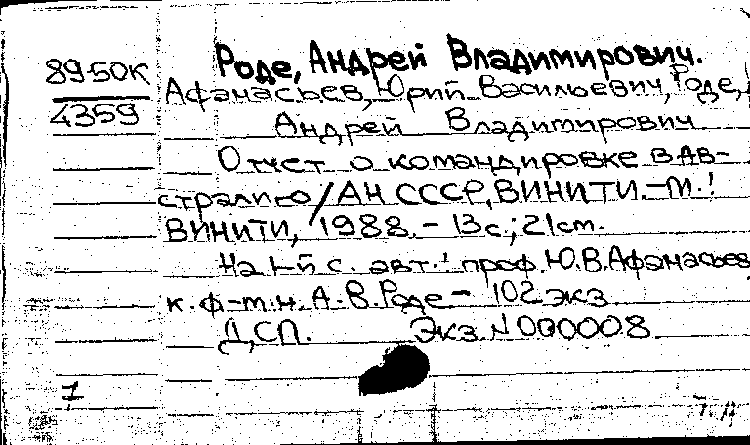 Роде, Андрей Владимирович.
89-50К
4359
Афанасьев, Юрий Васильевич, Роде,
Андрей Владимирович
Отчет о командировке в Ав-
стралию/АН СССР, ВИНИТИ.-М.:
ВИНИТИ, 1988.- 13с.; 21cm.
На 1-й с. авт.: проф. Ю.В.Афанасьев,
к.ф-т.н. А.В.Роде - 102 экз.
ДСП. Экз. N 000008
1